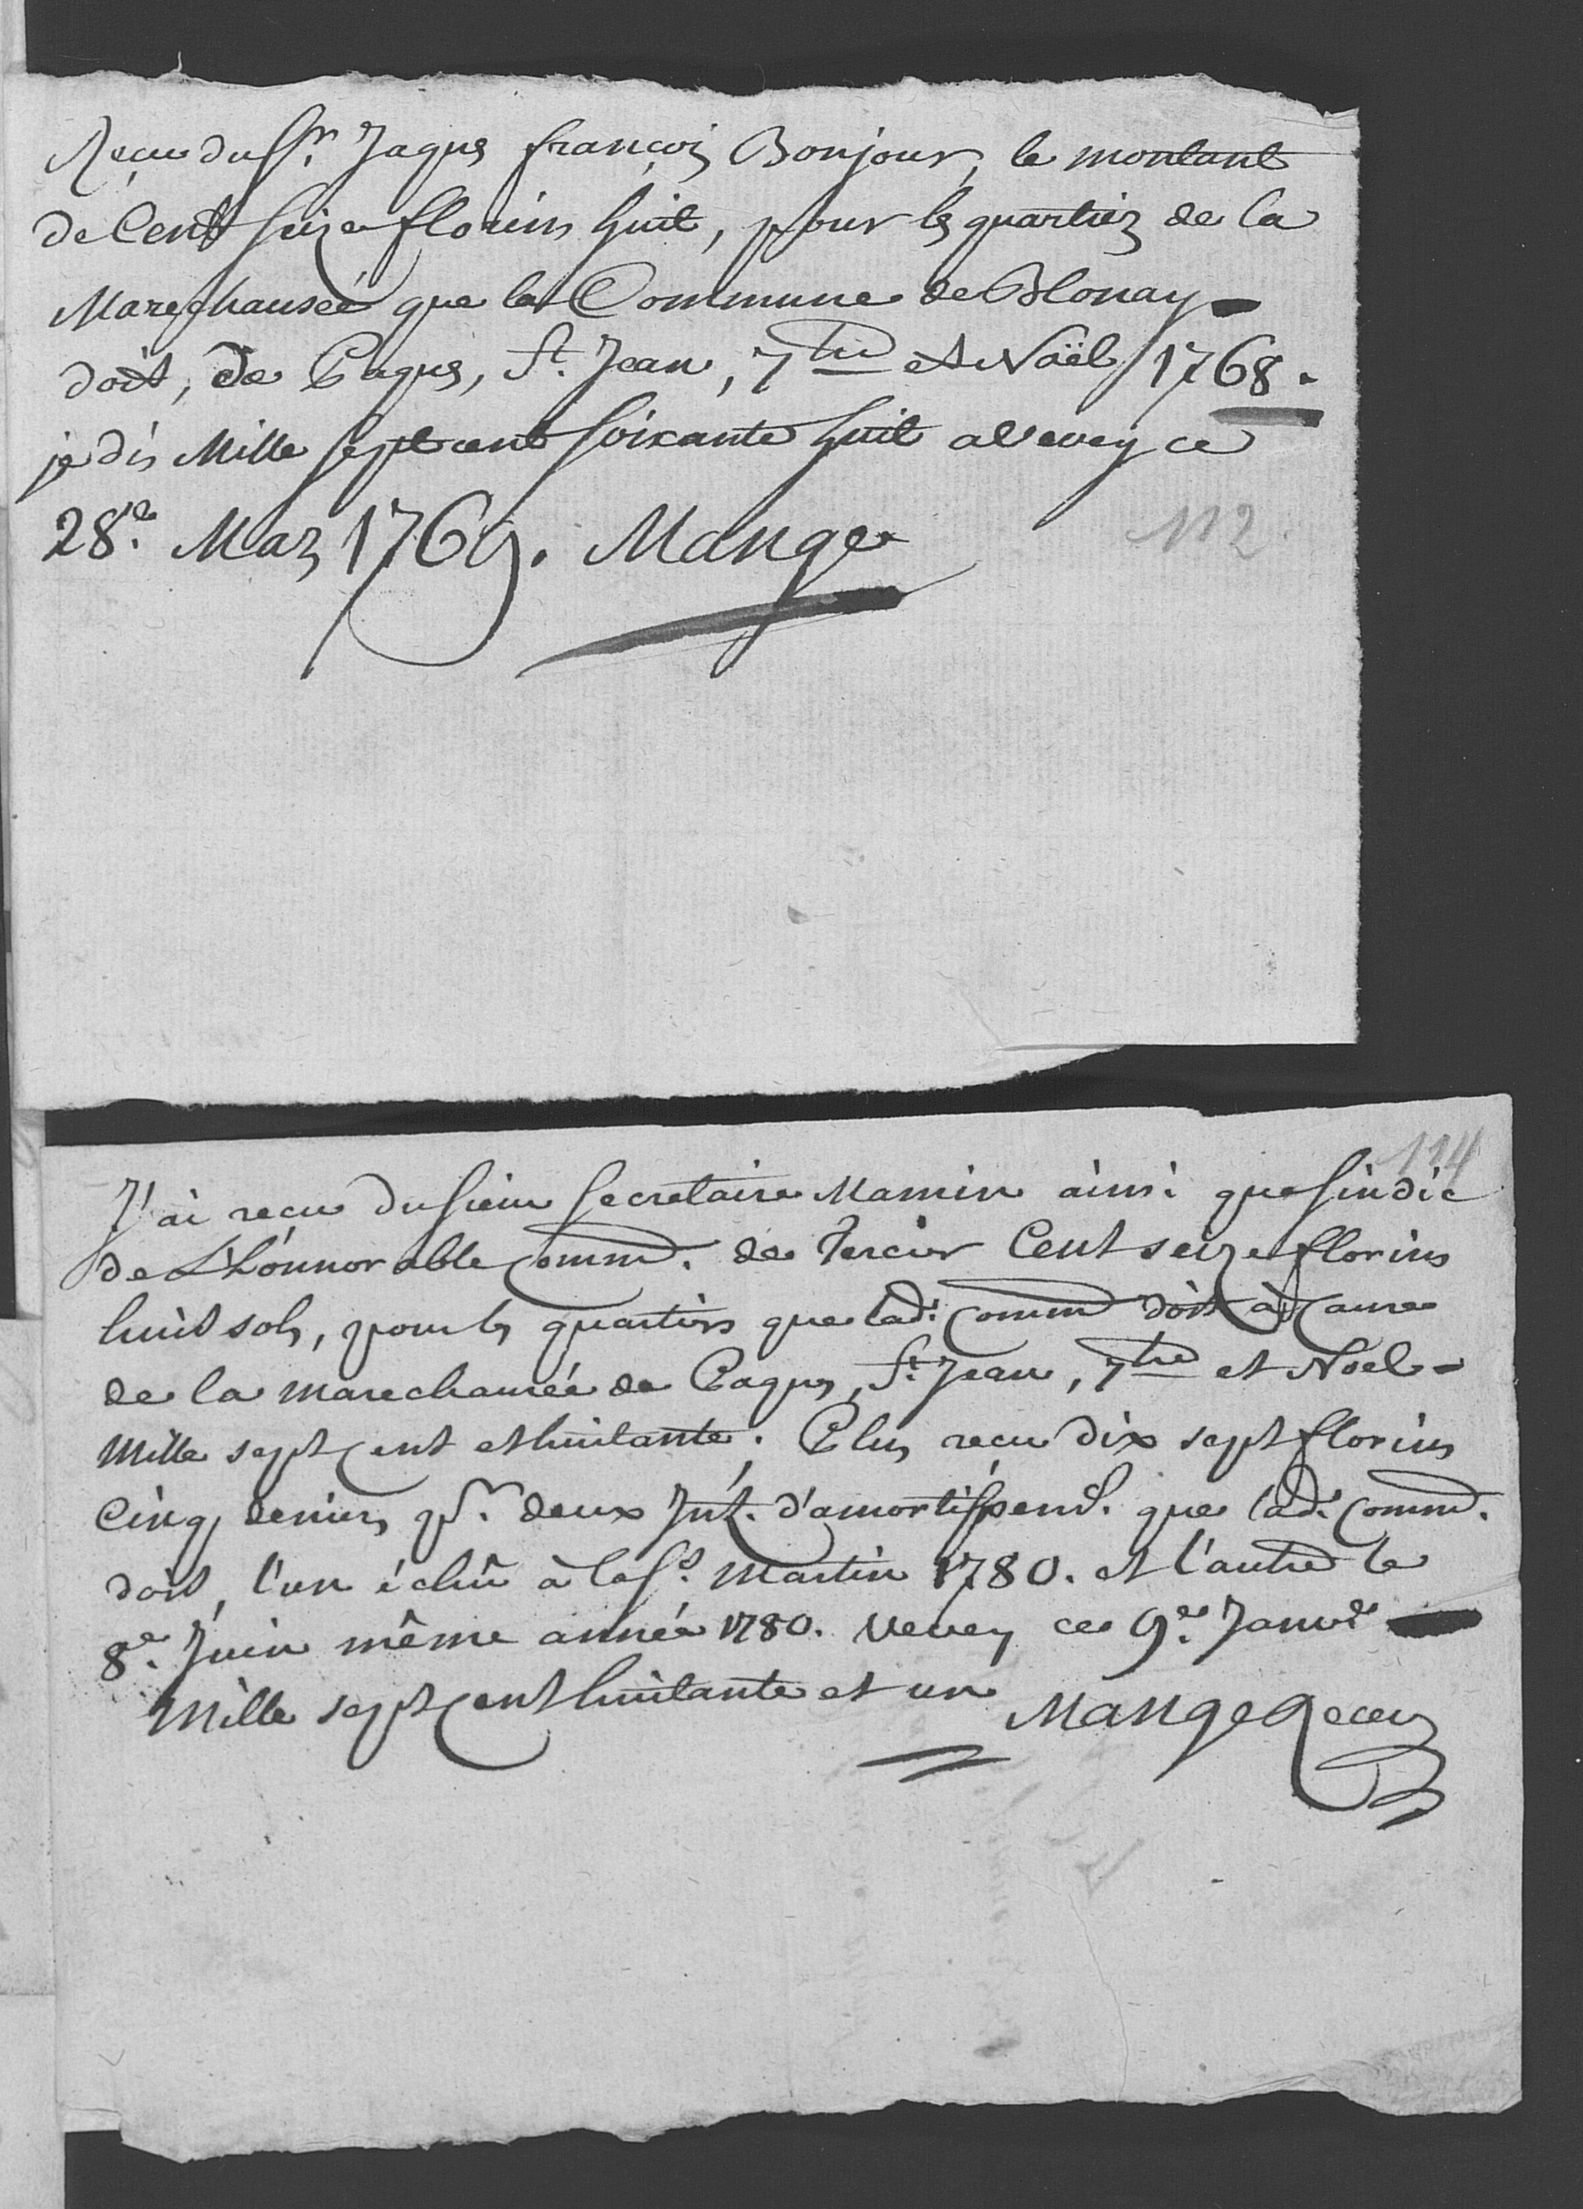 Reçu du Sr. Jaques françois Bonjour, le montant
de Cent seize florins huit, pour les quartiers de la
Mareschausée que la Commune de Blonay
doit, de Paques, St. Jean, 7bre et Noël 1768.
je dis Mille sept cent soixante huit a Vevey ce
28e. Mars 1769. Mange
112.
114
J'ai recu du sieur Secretaire Mamin ainsi que sindic
de L'Honnorable Comm. de Tercier Cent seize florins
huit sols, pour les quartiers que lad. Comm doit à Cause
de la marechausée de Paques, St. Jean, 7bre et Noel
Mille sept cent et huitante. Plus recu dix sept florins
Cinq deniers pr. deux Int. d'amortissend. que lad. Comm.
doit, l'un échû à la St. Martin 1780. et l'autre le
8e. Juin même année 1780. Vevey ce 9e. Janvr
Mille sept Cent huitante et un Mange Recev